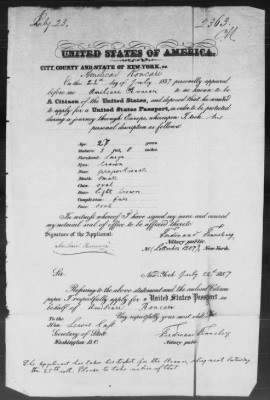 July 23.
2363
UNITED STATES OF AMERICA.
CITY, COUNTY AND STATE OF NEW-YORK, ss.
On the day of July 1857 personally appeared
before me to me known to be
A Citizen of the United States, and deposed that he wanted
to apply for a United States Passport, in order to be protected
during a journey through Europe, whereupon I took his
personal description as follows:
Age: 27 years
Stature: 5 feet, 8 inches
Forehead: large
Eyes: brown
Nose: proportioned
Mouth: small
Chin: oval
Hair: light brown
Complexion: fair
Face: oval
In witness whereof I have signed my name and caused
my notarial seal of office to be affixed thereto:
Signature of the Applicant:
Notary public
Sir: New-York July 22nd 1857
Referring to the above statement and the enclosed Citizen
paper I respectfully apply for a United States Passport in
behalf of
Very respectfully your most obdt.
To
Hon. Lewis Cass
Secretary of State
Washington D.C.
Notary public
The applicant has taken his ticket for the Steamer sailing next Saturday
the 25th inst. Please to take notice of that